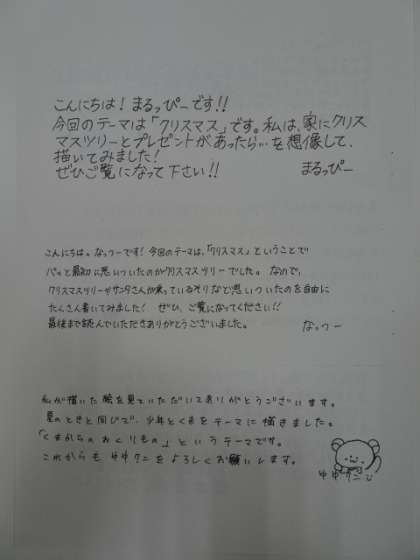 こんにちは！まるっぴーです!!
今回のテーマは「クリスマス」です。私は、家にクリス
マスツリーとプレゼントがあったら…を想像して、
描いてみました！
ぜひご覧になって下さい!!
まるっぴー
こんにちは。なっつーです！今回のテーマは、「クリスマス」ということで
パッと最初に思いついたのがクリスマスツリーでした。なので、
クリスマスツリーやサンタさんが乗っているそりなど思いついたのを自由に
たくさん書いてみました！ ぜひ、ご覧になってください!!
最後まで読んでいただきありがとうございました。
なっつー
私が描いた絵を見ていただいてありがとうございます。
夏のときと同じで、少年とくまをテーマに描きました。
「くまからのおくりもの」というテーマです。
これからもゆゆクニをよろしくお願いします。
ゆゆクニ